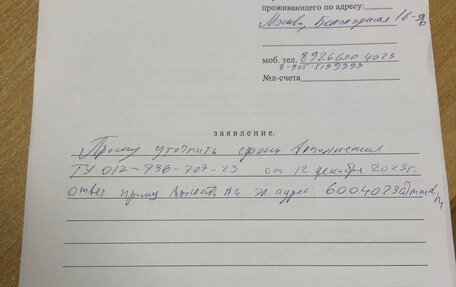 проживающего по адресу:
Москва, Беломорская 16-
моб. тел. 8926600 4023
8-905-5199993
№л-счета
заявление.
Прошу уточнить срока исполнения
ТУ 012-736-707-23 от 12 декабря 2023г.
Ответ прошу выслать на эл адрес: 6004023@